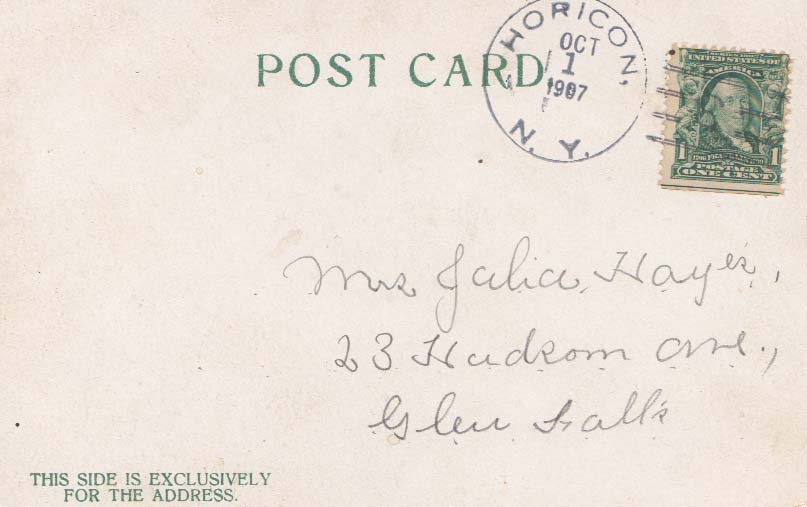 POST CARD
HORICON,
OCT
1
1907
N. Y.
UNITED STATES OF
AMERICA
1 1
POSTAGE
ONE CENT
Mrs Julia Hayes,
23 Hudson Ave.,
Glen Falls
THIS SIDE IS EXCLUSIVELY
FOR THE ADDRESS.